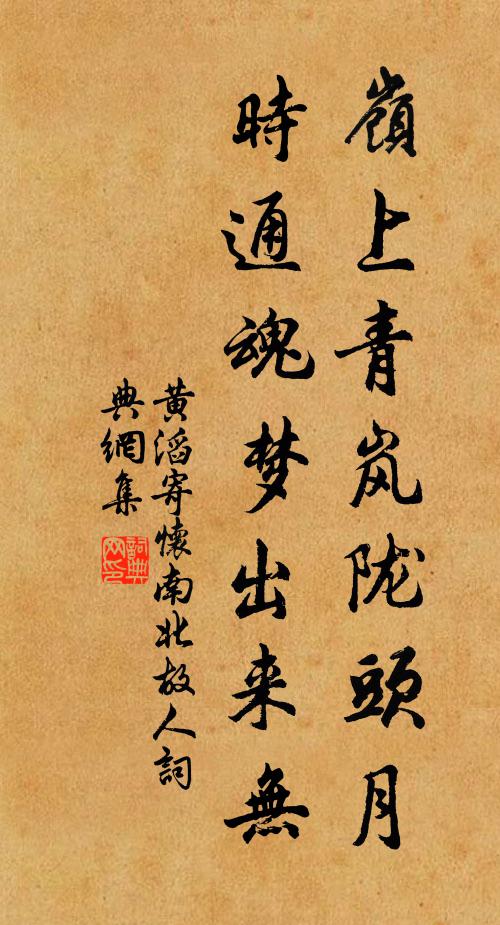 嶺上青岚陇頭月
時通魂梦出来無
黄滔寄懷南北故人詞
典網集
詞典
网印